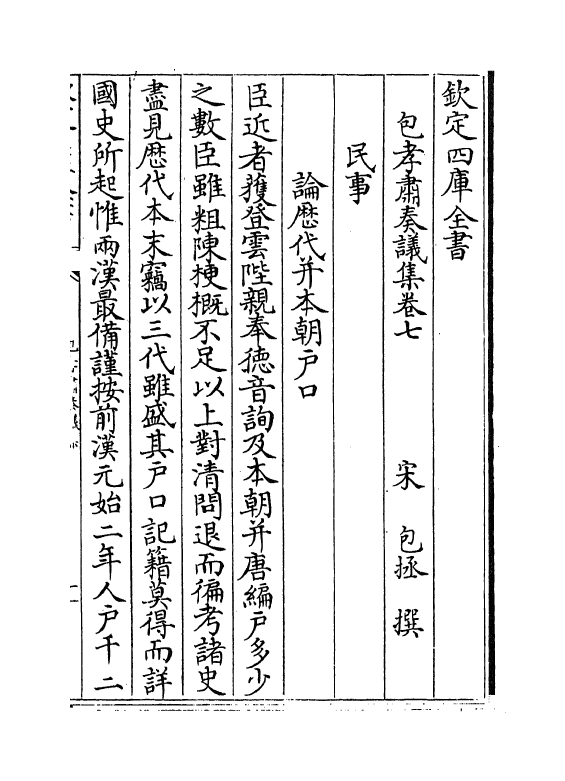 欽定四庫全書
包孝肅奏議集卷七
宋 包拯 撰
民事
論歴代并本朝戸口
臣近者獲登雲陛親奉徳音詢及本朝并唐編戸多少
之數臣雖粗陳梗概不足以上對清問退而徧考諸史
盡見歴代本末竊以三代雖盛其戸口記籍莫得而詳
國史所起惟兩漢最備謹按前漢元始二年人戸千二